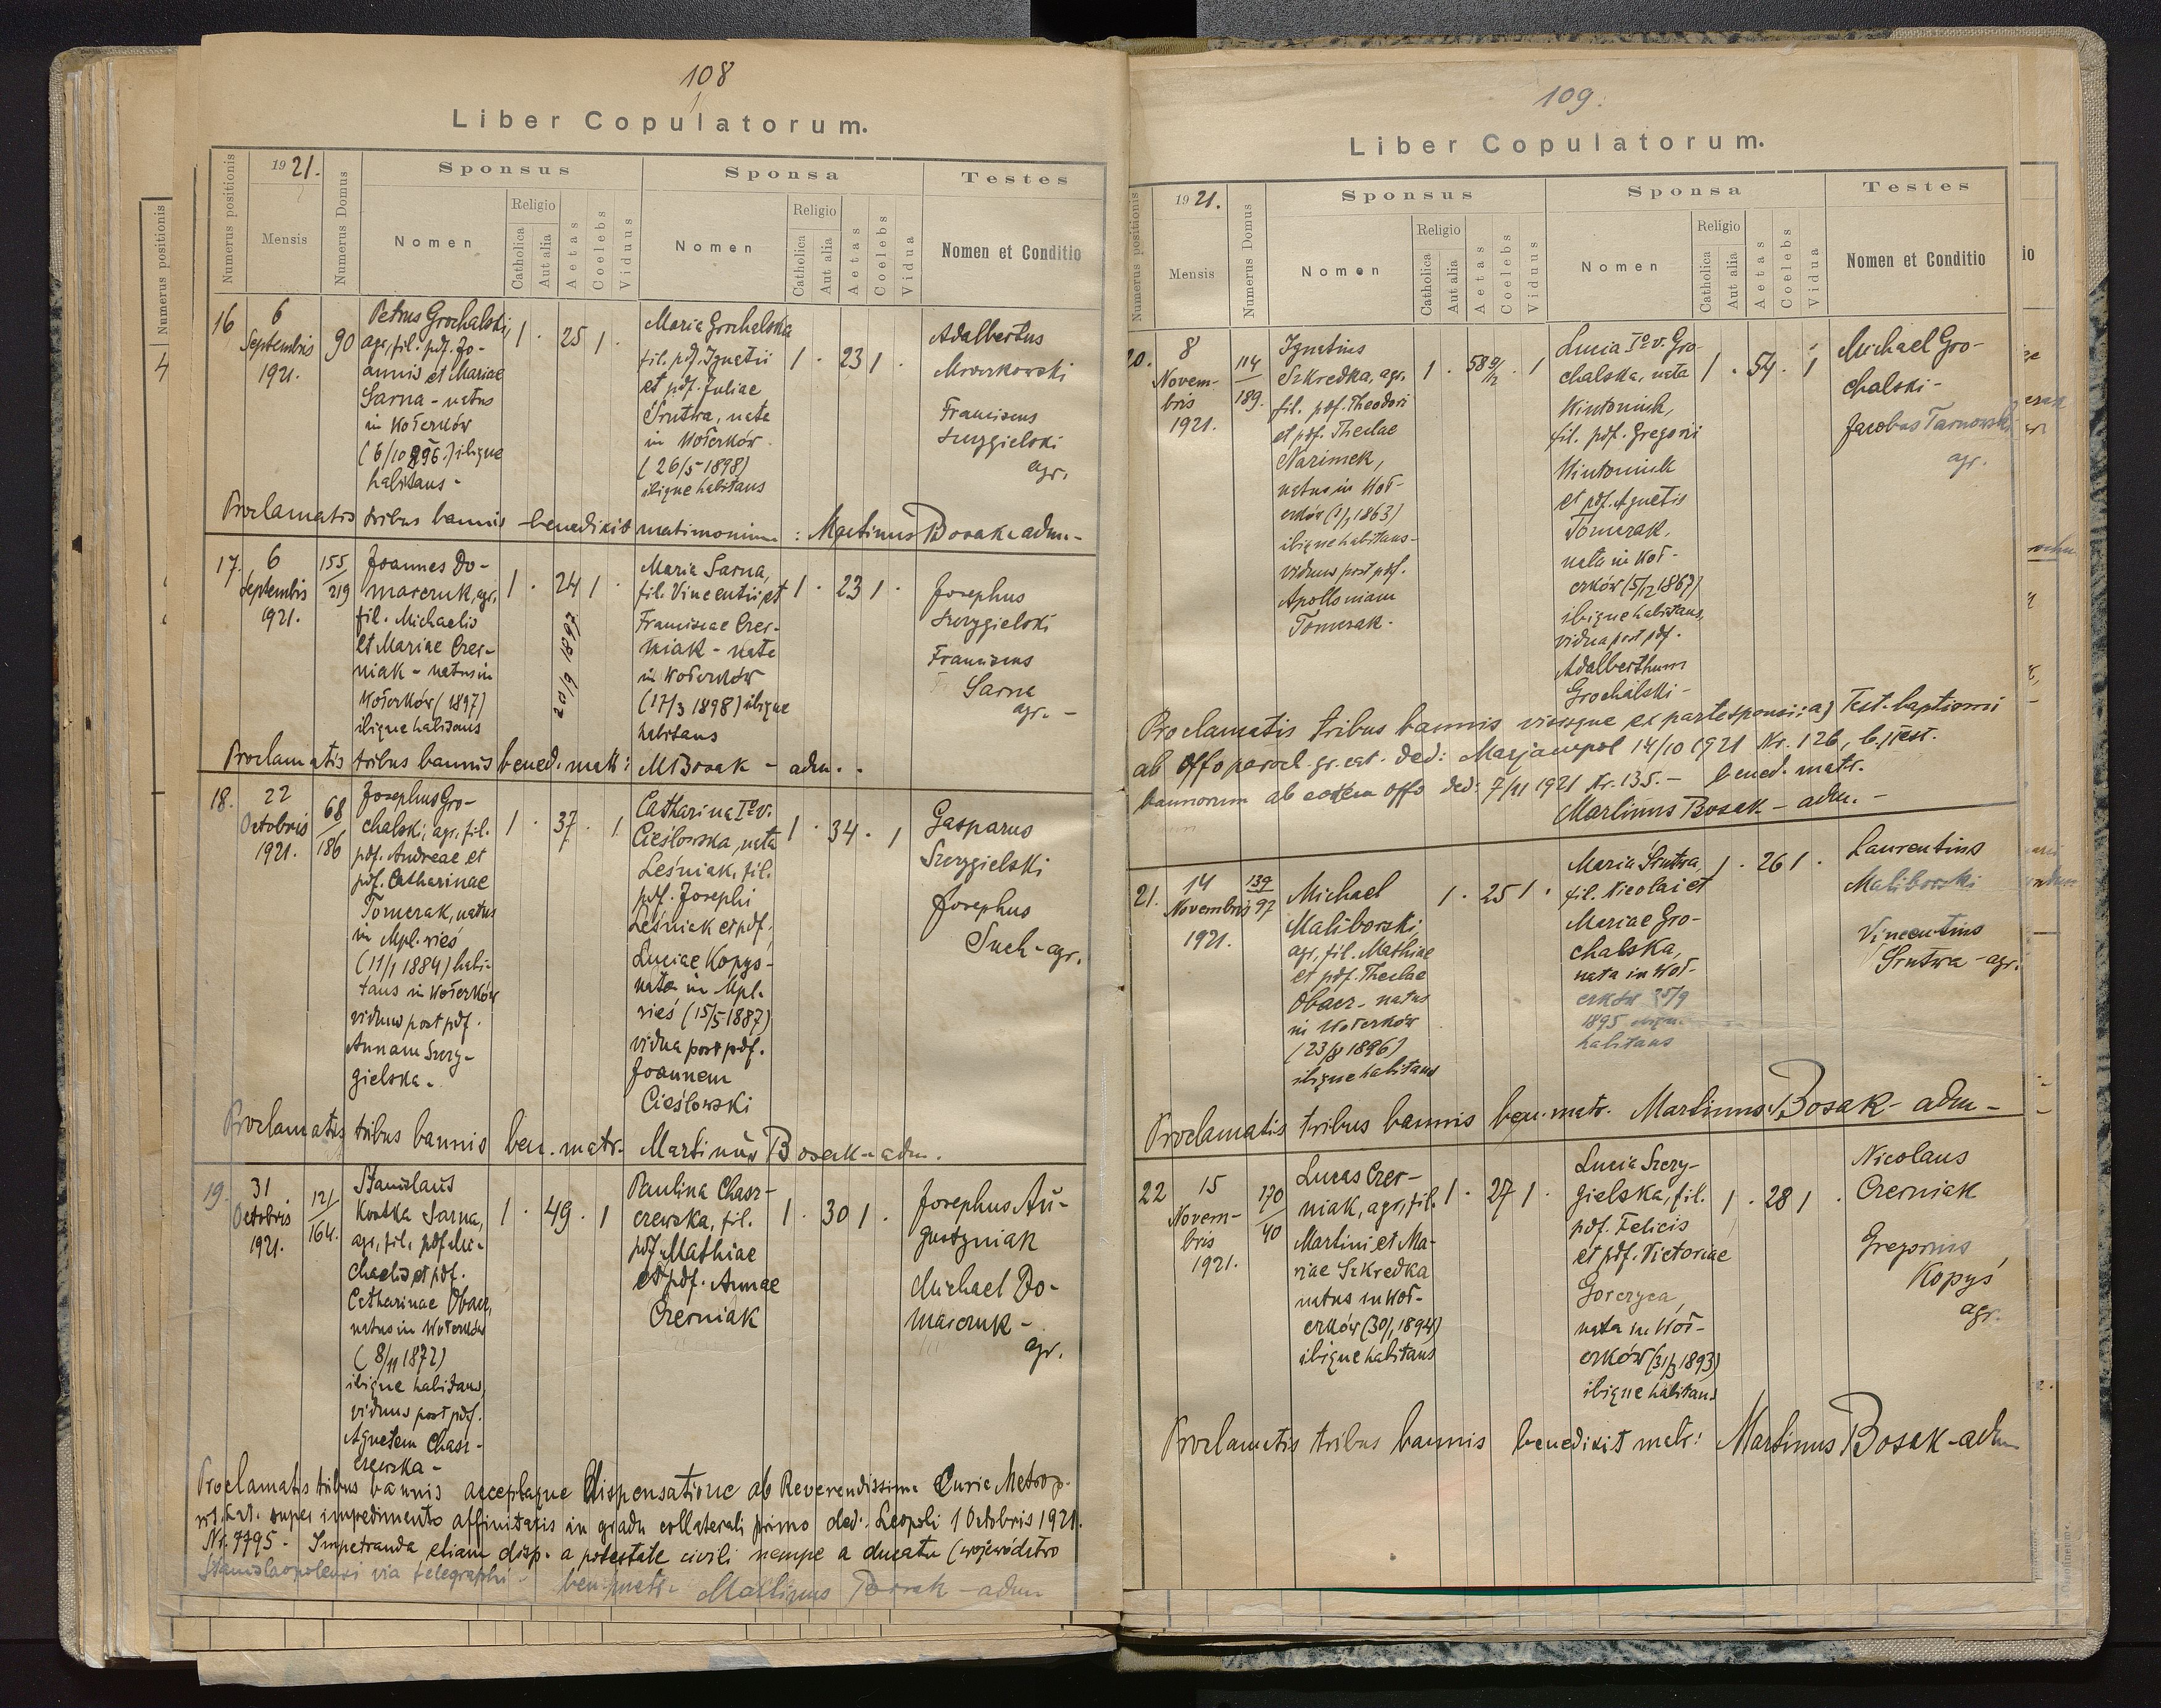 108
Liber Copulatorum.
Numerus positionis
1921.
Mensis
Numerus Domus
Sponsus
Nomen
Religio
Catholica
Aut alia
Aetas
Coelebs
Viduus
Sponsa
Nomen
Religio
Catholica
Aut alia
Aetas
Coelebs
Vidua
Testes
Nomen et Conditio
16
6
Septembris
1921.
90
Petrus Grochalski,
agr, fil. pdf. Jo-
annis et Mariae
Sarna - natus
in Kołerków
(6/10 896.) ibique
habitans -
1 . 25 1 .
Maria Grochalska
fil. pdf. Ignatii
et pdf. Juliae
Srutwa, nata
in Kołerków
(26/5 1898)
ibique habitans
1 . 23 1 .
Adalbertus
Franciscus
Szczygielski
agr.
Proclamatis tribus bannis benedixit matrimonium : Martinus Bosak - adm. -
17.
6
Septembris
1921.
155/219
Joannes Do-
marczuk, agr,
fil. Michaelis
et Mariae Czer-
niak - natus in
Kołerków (1897)
ibique habitans
1 . 24 1 .
20/9 1897
Maria Sarna,
fil. Vincentii et
Franciscae Czer-
niak - nata
in Kołerków
(17/3 1898) ibique
habitans
1 . 23 1 .
Josephus
Szczygielski
Franciscus
Sarna
agr. -
Proclamatis tribus bannis bened. matr: MBosak - adm. .
18.
22
Octobris
1921.
68/186
Josephus Gro-
chalski, agr, fil.
pdf. Andreae et
pdf. Catharinae
Tomczak, natus
in Mpl. wieś
(11/1 1884) habi-
tans in Kołerków
viduus post pdf.
Annam Szczy-
gielska.
1 . 37 . 1
Catharina Iº v.
Cieślowska, nata
Leśniak, fil.
pdf. Josephi
Leśniak et pdf.
Luciae Kopyś -
nata in Mpl.
wieś (15/5 1887)
vidua post pdf.
Joannem
Cieślowski
1 . 34 . 1
Gasparus
Szczygielski
Josephus
Such - agr.
Proclamatis tribus bannis ben. matr. Martinus Bosak - adm.
19.
31
Octobris
1921.
121/164.
Stanislaus
Kostka Sarna,
agr, fil. pdf. Mi-
chaelis et pdf.
Catharinae Obacz,
natus in Kołerków
(8/11 1872)
ibique habitans,
viduus post pdf.
Agnetem Chasz-
czewska -
1 . 49 . 1
Paulina Chasz-
czewska, fil.
pdf. Mathiae
et pdf. Annae
Czerniak
1 . 30 1 .
Josephus Au-
gustyniak
Michael Do-
marczuk -
agr.
Proclamatis tribus bannis acceptaque dispensatione ab Reverendissima Curia Metrop.
rit. lat. super impedimento affinitatis in gradu collaterali primo ded. Leopoli 1 Octobris 1921.
Nr. 7795 - Impetranda etiam disp. a potestate civili nempe a ducatu (województwo
Stanislaopolensi via telegraphi - ben. matr. Martinus Bosak - adm
109.
Liber Copulatorum.
Numerus positionis
1921.
Mensis
Numerus Domus
Sponsus
Nomen
Religio
Catholica
Aut alia
Aetas
Coelebs
Viduus
Sponsa
Nomen
Religio
Catholica
Aut alia
Aetas
Coelebs
Vidua
Testes
Nomen et Conditio
20.
8
Novem-
bris
1921.
114/189.
Ignatius
Szkredka, agr,
fil. pdf. Theodori
et pdf. Theclae
Nazimek,
natus in Koł-
erków (1/1 1863)
ibique habitans -
viduus post pdf.
Apolloniam
Tomczak.
1 . 58 9/12 . 1
Lucia Iº v. Gro-
chalska, nata
Wintoniuk,
fil. pdf. Gregorii
Wintoniuk
et pdf. Agnetis
Tomczak,
nata in Koł-
erków (5/12 1867)
ibique habitans,
vidua post pdf.
Adalberthum
Grochalski -
1 . 54 . 1
Michael Gro-
chalski -
Jacobus Tarnowski
agr.
Proclamatis tribus bannis visisque ex parte sponsi: a) Test. baptismi
ab Offo paroch. gr. cat. ded: Marjampol 14/10 1921 Nr. 126, b) Test.
bannorum ab eodem Offo ded: 7/11 1921 Nr. 135. - bened. matr.
Martinus Bosak - adm. -
21.
14
Novembris
1921.
139/97
Michael
Maliborski,
agr, fil. Mathiae
et pdf. Theclae
Obacz - natus
in Kołerków
(23/8 1896)
ibique habitans
1 . 25 1 .
Maria Srutwa,
fil. Nicolai et
Mariae Gro-
chalska,
nata in Koł-
erków 25/9
1895 ibique
habitans
1 . 26 1 .
Laurentius
Maliborski
Vincentius
Srutwa - agr.
Proclamatis tribus bannis ben. matr. Martinus Bosak - adm -
22
15
Novem-
bris
1921.
170/40
Lucas Czer-
niak, agr, fil.
Martini et Ma-
riae Szkredka
natus in Koł-
erków (30/1 1894)
ibique habitans
1 . 27 1 .
Lucia Szczy-
gielska, fil.
pdf. Felicis
et pdf. Victoriae
nata in Koł-
erków (31/3 1893)
ibique habitans
1 . 28 1 .
Nicolaus
Czerniak
Gregorius
Kopyś
agr.
Proclamatis tribus bannis benedixit matr: Martinus Bosak - adm